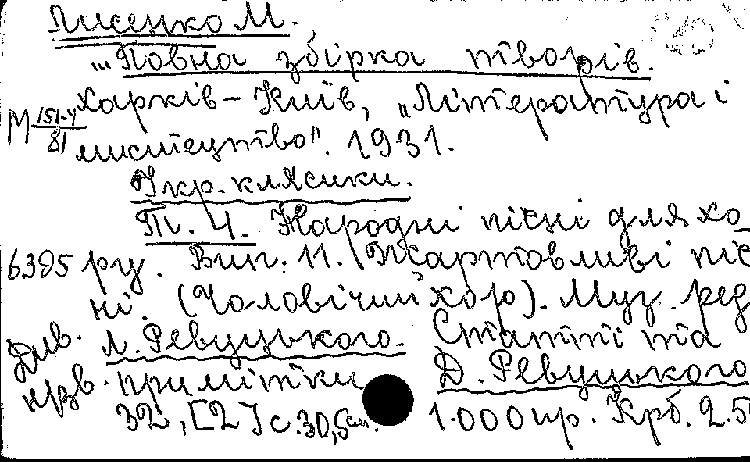 Лисенко М.
"Повна збірка творів.
Харків-Київ, "Література і
М 151.4/81
мистецтво". 1931.
Укр. клясики.
Т. 4. Народні пісні для хо
6395 ру. Вип. 11. Жартовливі піс
ні. (Чоловічий хор). Муз. ред
Див. Л. Ревуцького. Статті та
примітки Д. Ревуцького
32, [2] с. 30,5 см. 1.000 пр. Крб. 2.5